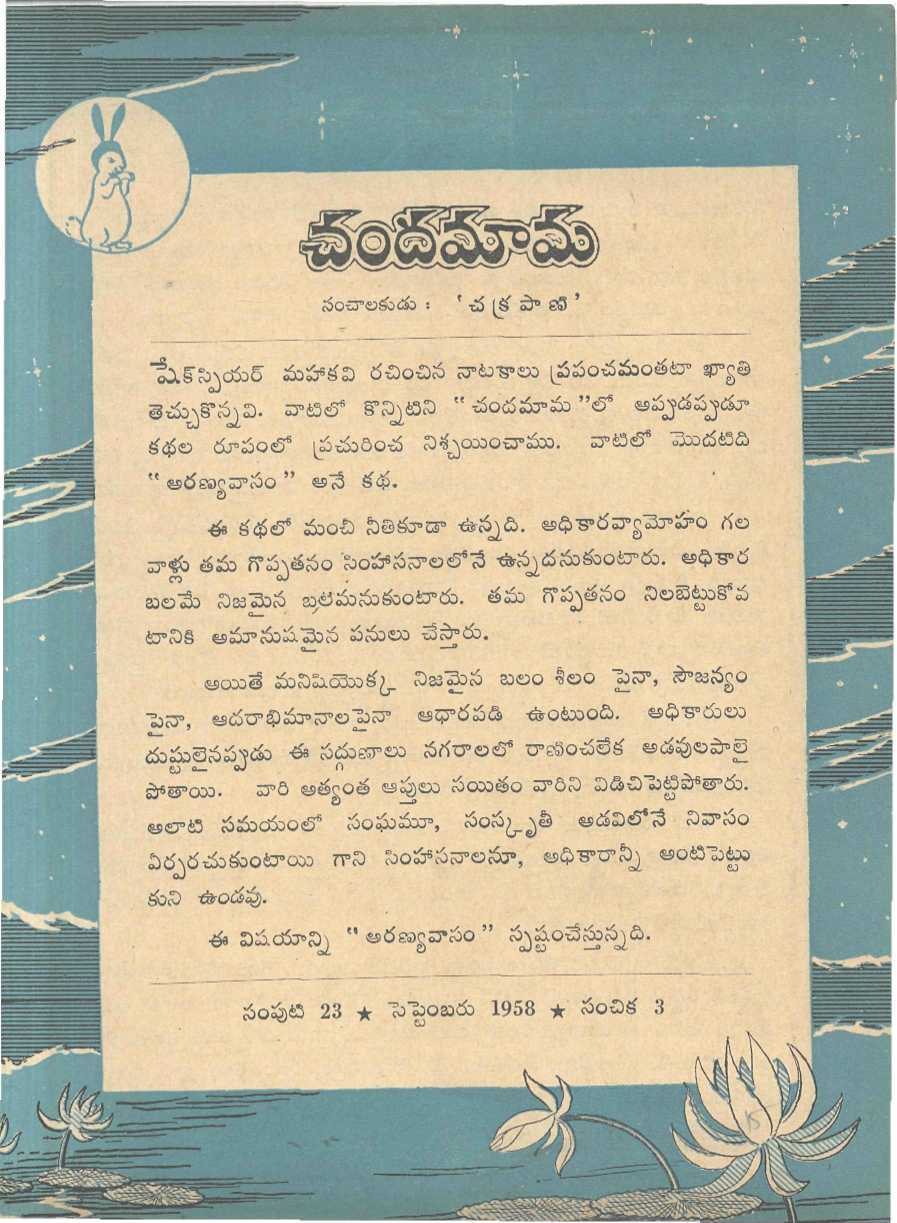 చందమామ
సంచాలకుడు : ' చక్రపాణి '
షేక్‌స్పియర్ మహాకవి రచించిన నాటకాలు ప్రపంచమంతటా ఖ్యాతి
తెచ్చుకొన్నవి. వాటిలో కొన్నిటిని " చందమామ "లో అప్పుడప్పుడూ
కథల రూపంలో ప్రచురించ నిశ్చయించాము. వాటిలో మొదటిది
" అరణ్యవాసం " అనే కథ.
ఈ కథలో మంచి నీతికూడా ఉన్నది. అధికారవ్యామోహం గల
వాళ్లు తమ గొప్పతనం సింహాసనాలలోనే ఉన్నదనుకుంటారు. అధికార
బలమే నిజమైన బలమనుకుంటారు. తమ గొప్పతనం నిలబెట్టుకోవ
టానికి అమానుషమైన పనులు చేస్తారు.
అయితే మనిషియొక్క నిజమైన బలం శీలం పైనా, సౌజన్యం
పైనా, ఆదరాభిమానాలపైనా ఆధారపడి ఉంటుంది. అధికారులు
దుష్టులైనప్పుడు ఈ సద్గుణాలు నగరాలలో రాణించలేక అడవులపాలై
పోతాయి. వారి అత్యంత ఆప్తులు సయితం వారిని విడిచిపెట్టిపోతారు.
అలాటి సమయంలో సంఘమూ, సంస్కృతీ అడవిలోనే నివాసం
ఏర్పరచుకుంటాయి గాని సింహాసనాలనూ, అధికారాన్నీ అంటిపెట్టు
కుని ఉండవు.
ఈ విషయాన్ని " అరణ్యవాసం " స్పష్టంచేస్తున్నది.
సంపుటి 23 ★ సెప్టెంబరు 1958 ★ సంచిక 3